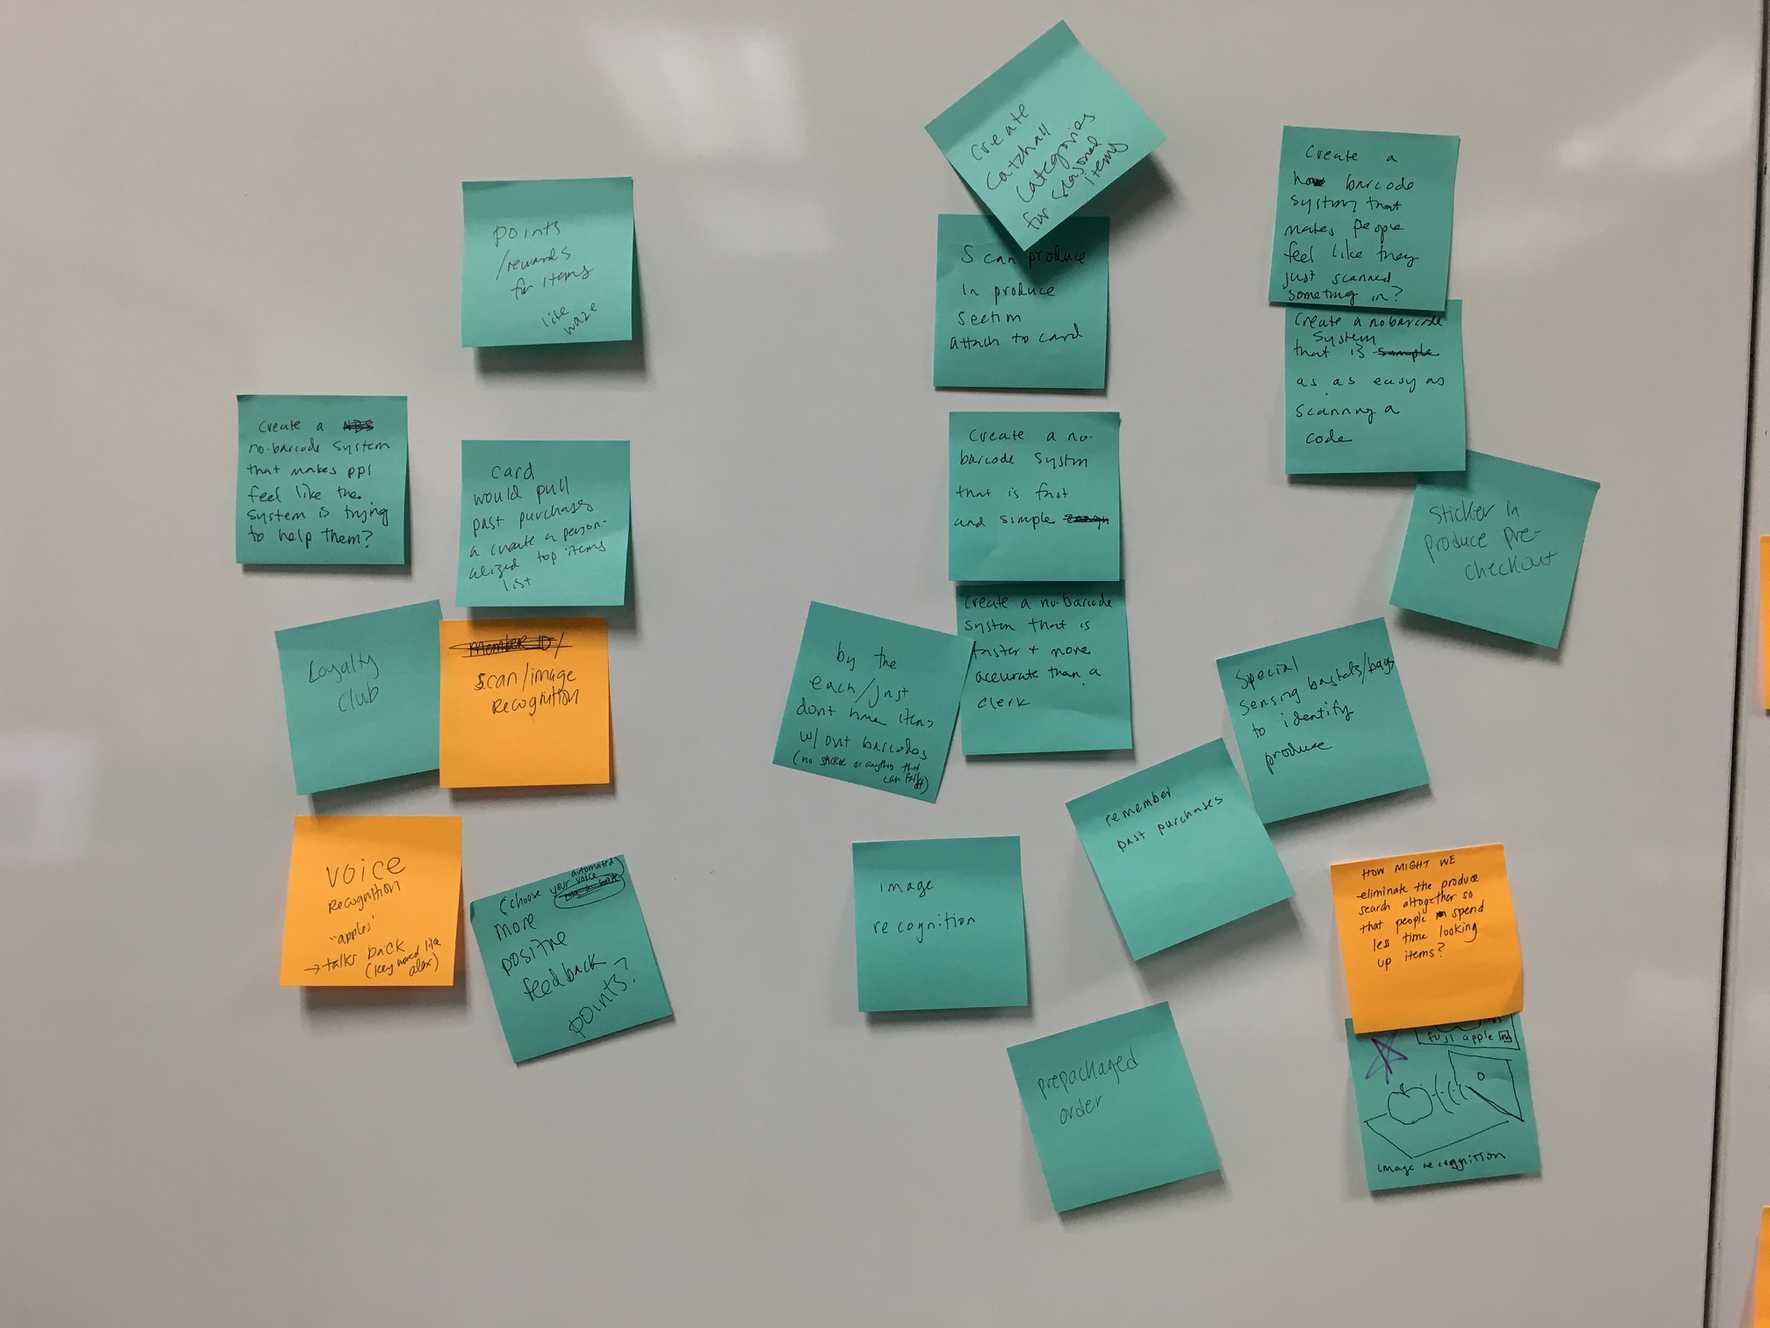 points
/rewards
for items
like
waze
create a
no-barcode system
that makes ppl
feel like the
system is trying
to help them?
card
would pull
past purchases
a create a person-
alized top items
list
Loyalty
club
Member ID/
scan/image
recognition
VOICE
Recognition
"apples"
→ talks back
(key word like
alex)
(choose your automated
voice
more
positive
feedback
points?
create
catchall
categories
for seasonal
items
Scan produce
in produce
section
attach to card
create a no-
barcode system
that is fast
and simple
create a no-barcode
system that is
faster + more
accurate than a
clerk
by the
each/just
dont have items
w/out barcodes
(no sticker or anything that
can fall off)
image
recognition
remember
past purchases
prepackaged
order
Create a
barcode
system that
makes people
feel like they
just scanned
someting in?
Create a no barcode
system
that is simple
as as easy as
scanning a
code
Sticker in
produce pre-
checkout
Special
sensing baskets/bags
to identify
produce
HOW MIGHT WE
eliminate the produce
search altogether so
that people spend
less time looking
up items?
fuji apple
image recognition